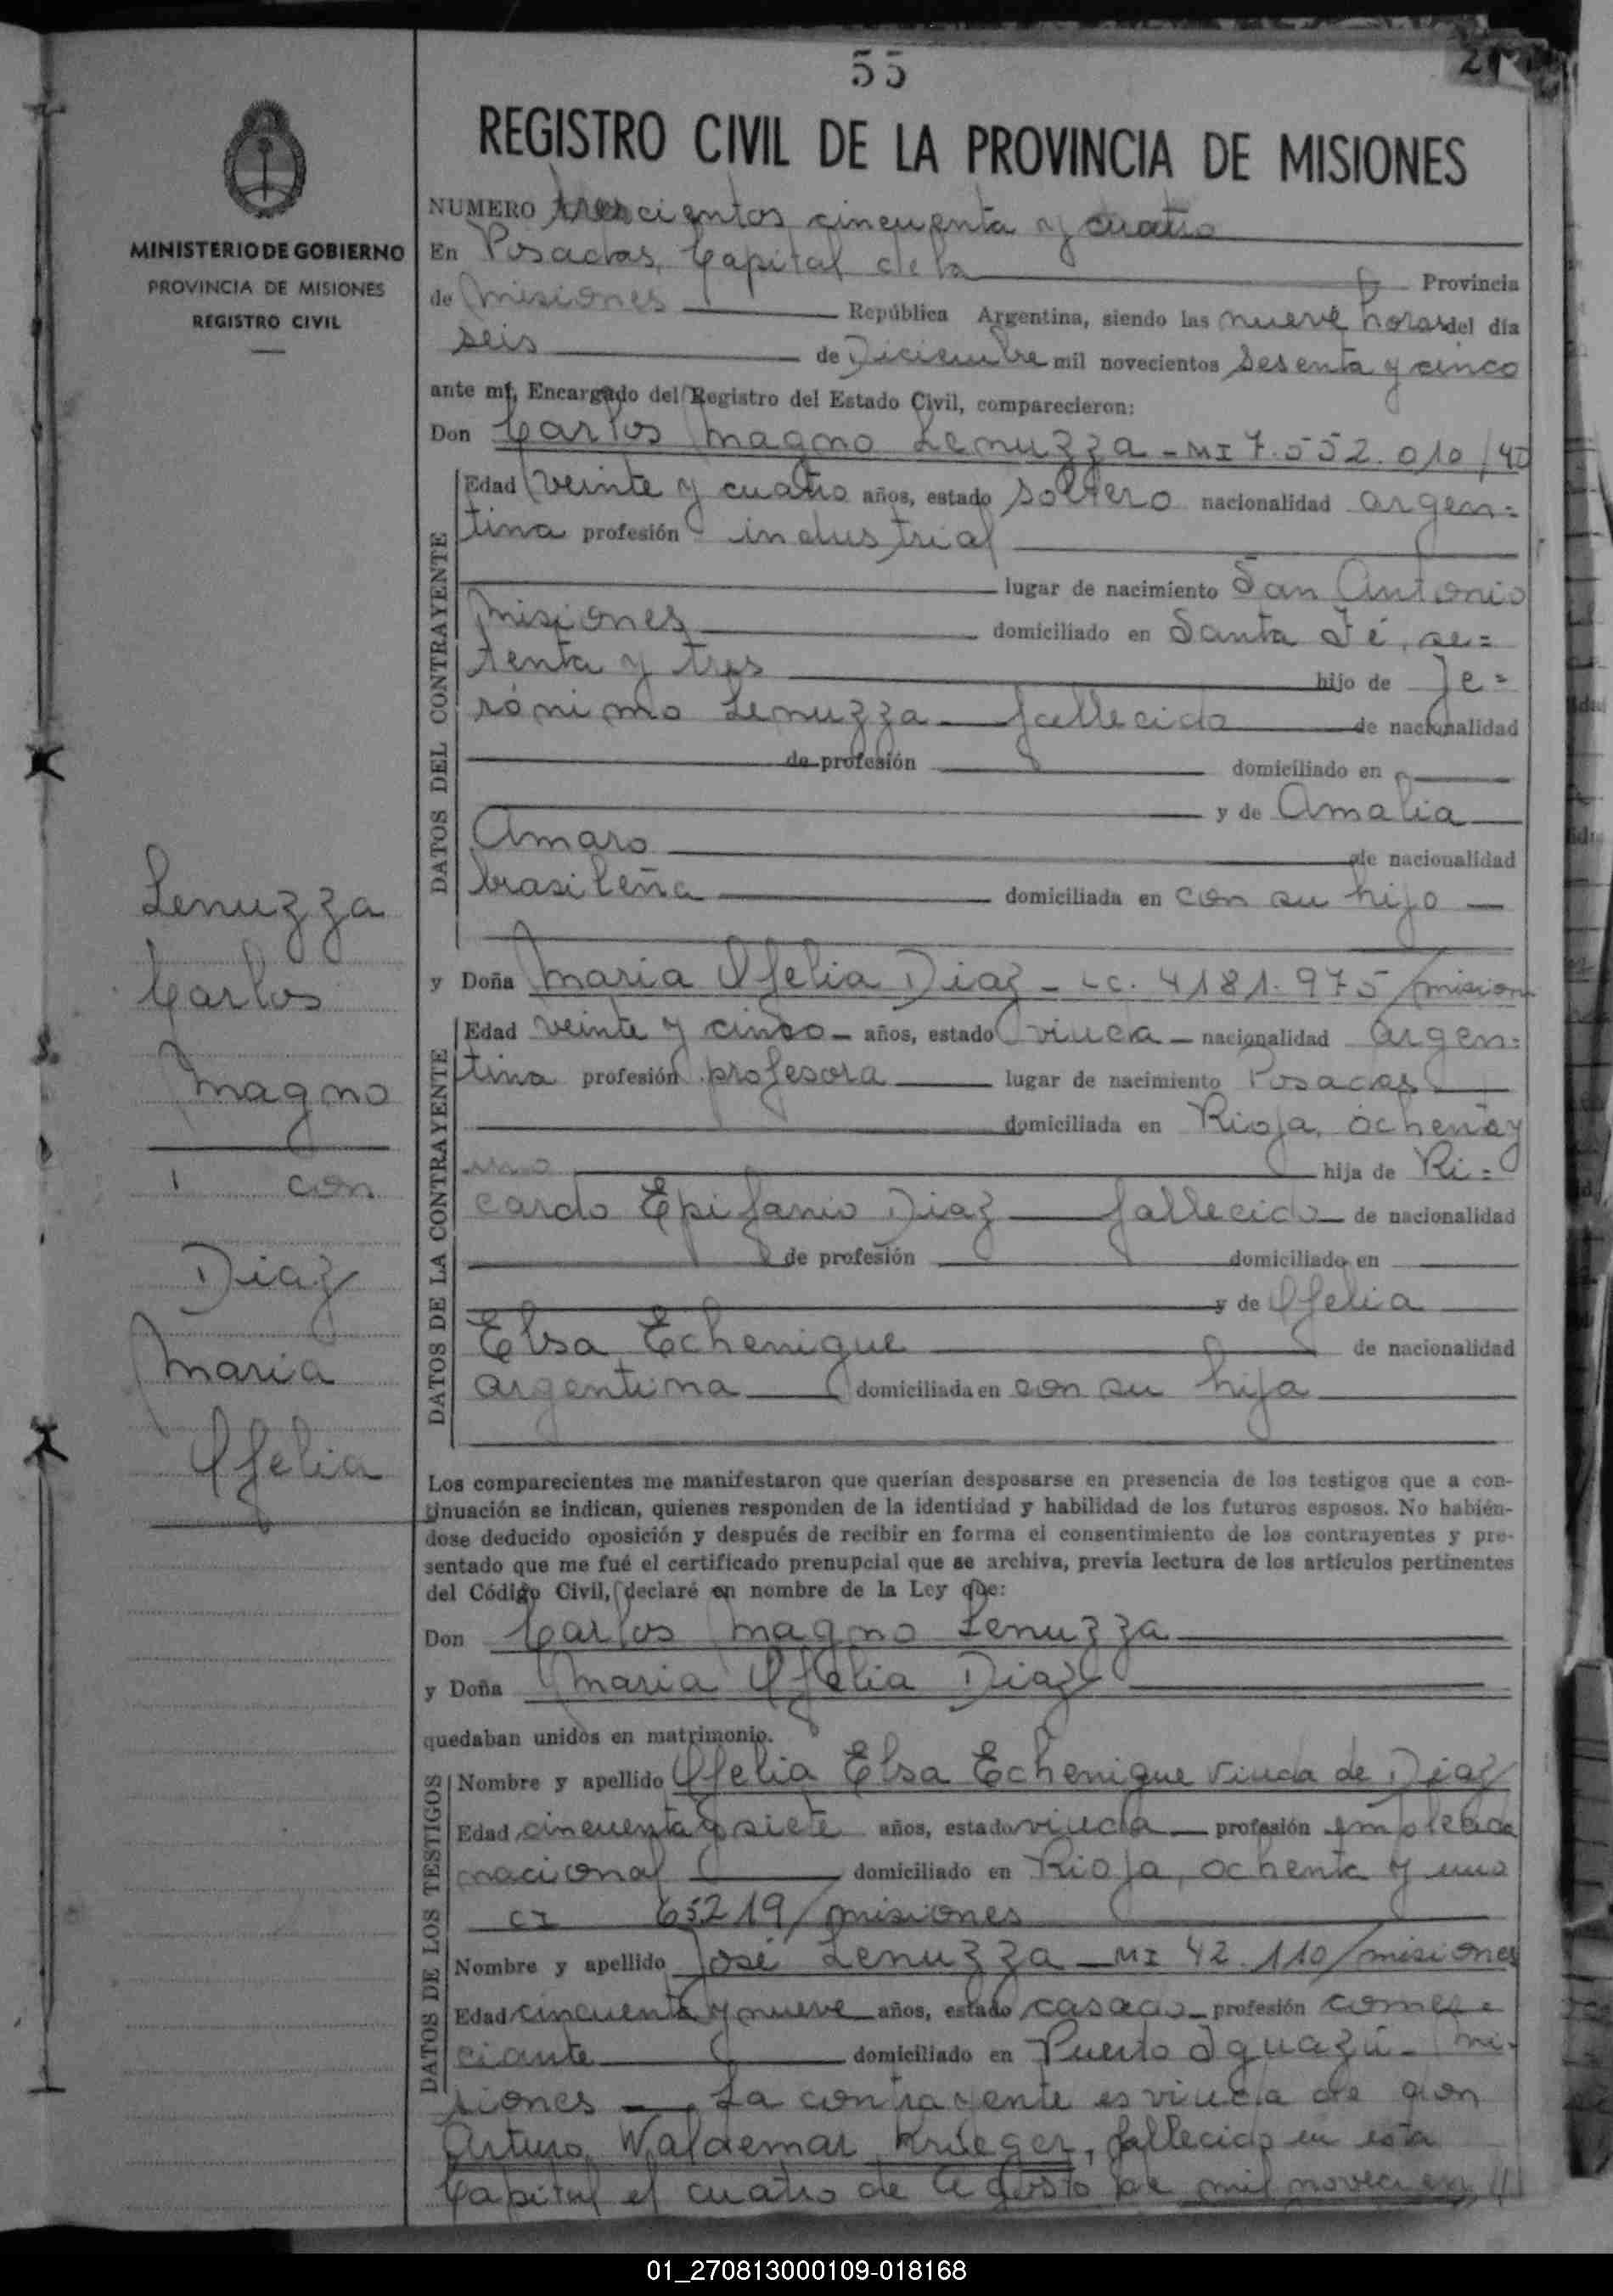 55
REGISTRO CIVIL DE LA PROVINCIA DE MISIONES
MINISTERIO DE GOBIERNO
PROVINCIA DE MISIONES
REGISTRO CIVIL
Lenuzza
Carlos
Magno
con
Diaz
Maria
Ofelia
NUMERO trescientos cincuenta y cuatro
En Posadas, Capital de la Provincia
de Misiones República Argentina, siendo las nueve horas del día
seis de Diciembre mil novecientos sesenta y cinco
ante mí, Encargado del Registro del Estado Civil, comparecieron:
Don Carlos Magno Lenuzza - MI 7.552.010/40
DATOS DEL CONTRAYENTE
Edad veinte y cuatro años, estado soltero nacionalidad argen=
tina profesión industrial
lugar de nacimiento San Antonio
Misiones domiciliado en Santa Fé, se=
tenta y tres hijo de Je=
rónimo Lenuzza fallecido de nacionalidad
de profesión domiciliado en
y de Amalia
Amaro de nacionalidad
brasileña domiciliada en con su hijo
y Doña Maria Ofelia Diaz - LC. 4181.975/mision
DATOS DE LA CONTRAYENTE
Edad veinte y cinco años, estado viuda nacionalidad argen=
tina profesión profesora lugar de nacimiento Posadas
domiciliada en Rioja, ochenta y
uno hija de Ri=
cardo Epifanio Diaz fallecido de nacionalidad
de profesión domiciliado en
y de Ofelia
Elsa Echenique de nacionalidad
argentina domiciliada en con su hija
Los comparecientes me manifestaron que querían desposarse en presencia de los testigos que a con-
tinuación se indican, quienes responden de la identidad y habilidad de los futuros esposos. No habién-
dose deducido oposición y después de recibir en forma el consentimiento de los contrayentes y pre-
sentado que me fué el certificado prenupcial que se archiva, previa lectura de los artículos pertinentes
del Código Civil, declaré en nombre de la Ley que:
Don Carlos Magno Lenuzza
y Doña Maria Ofelia Diaz
quedaban unidos en matrimonio.
DATOS DE LOS TESTIGOS
Nombre y apellido Ofelia Elsa Echenique viuda de Diaz
Edad cincuenta y siete años, estado viuda profesión empleada
nacional domiciliado en Rioja, ochenta y uno
CI 65219/misiones
Nombre y apellido José Lenuzza - MI 42.110/misiones
Edad cincuenta y nueve años, estado casado profesión comer=
ciante domiciliado en Puerto Iguazú - Mi-
siones La contrayente es viuda de don
Arturo Waldemar Krieger, fallecido en esta
Capital el cuatro de Agosto de mil novecien
01_270813000109-018168